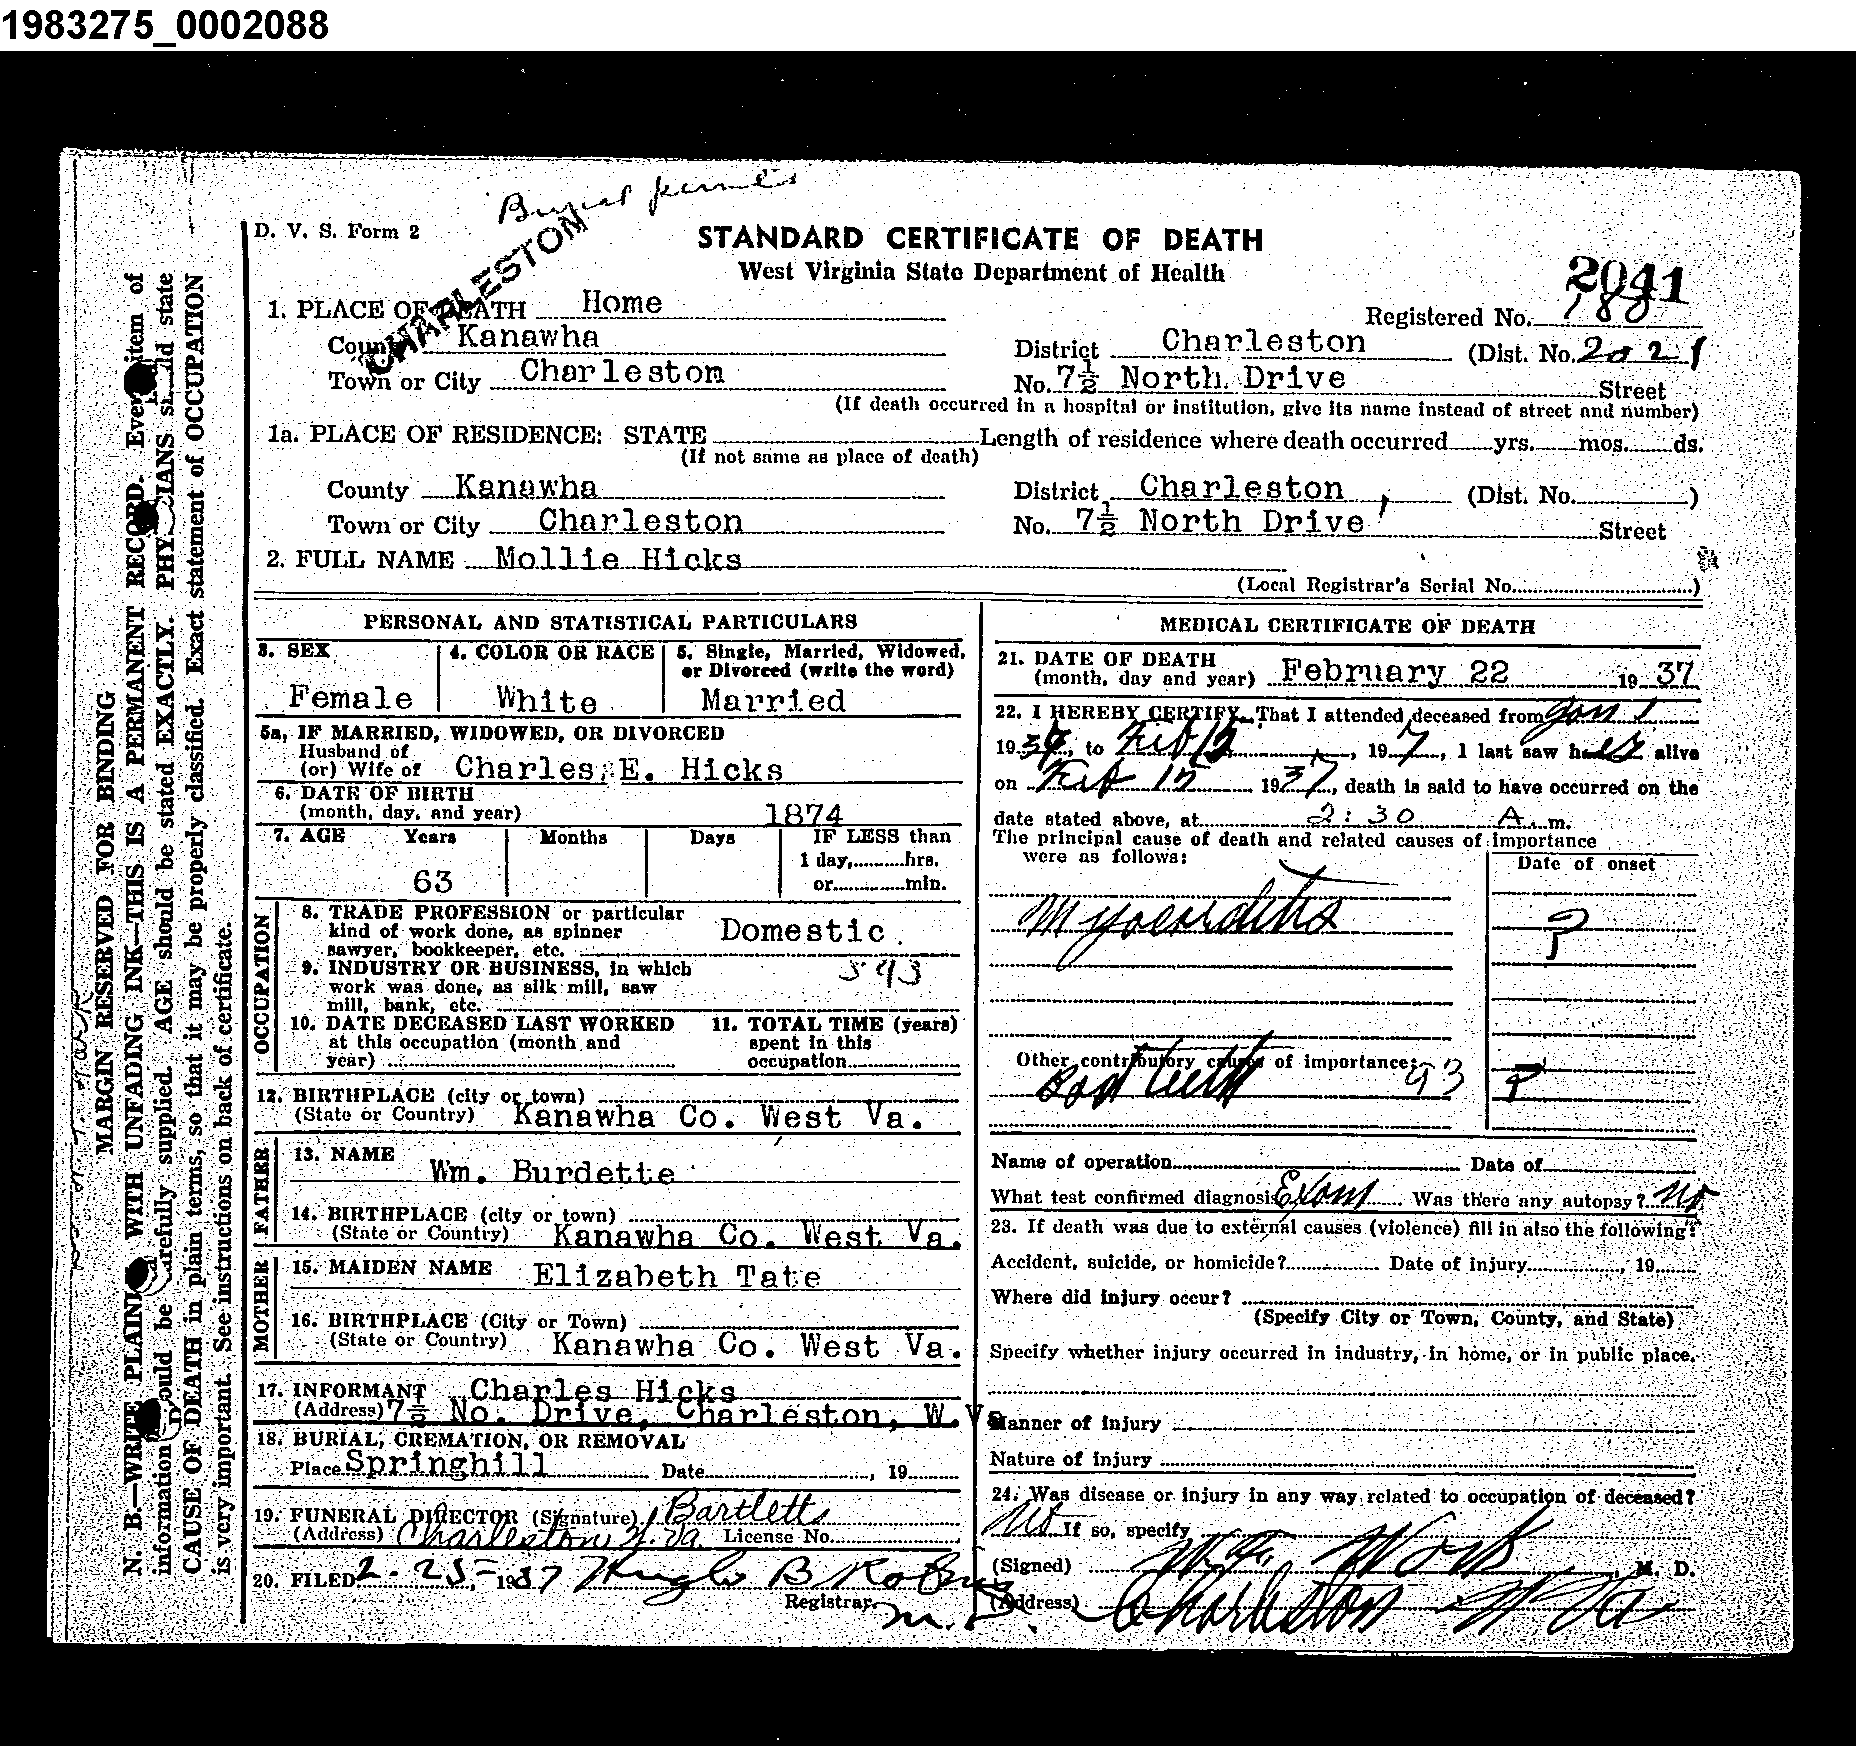 1983275_0002088
Burial permit
D. V. S. Form 2
CHARLESTON
STANDARD CERTIFICATE OF DEATH
West Virginia State Department of Health
2041
1. PLACE OF DEATH Home
Registered No. 188
County Kanawha District Charleston (Dist. No. 2021
Town or City Charleston No. 7½ North Drive Street
(If death occurred in a hospital or institution, give its name instead of street and number)
1a. PLACE OF RESIDENCE: STATE Length of residence where death occurred yrs. mos. ds.
(If not same as place of death)
County Kanawha District Charleston, (Dist. No. )
Town or City Charleston No. 7½ North Drive Street
2. FULL NAME Mollie Hicks
(Local Registrar's Serial No. )
PERSONAL AND STATISTICAL PARTICULARS
3. SEX Female
4. COLOR OR RACE White
5. Single, Married, Widowed, or Divorced (write the word) Married
5a, IF MARRIED, WIDOWED, OR DIVORCED
Husband of
(or) Wife of Charles E. Hicks
6. DATE OF BIRTH
(month, day, and year) 1874
7. AGE Years Months Days IF LESS than
1 day, hrs.
63 or min.
OCCUPATION
8. TRADE PROFESSION or particular
kind of work done, as spinner
sawyer, bookkeeper, etc. Domestic.
9. INDUSTRY OR BUSINESS, in which
work was done, as silk mill, saw
mill, bank, etc.
10. DATE DECEASED LAST WORKED
at this occupation (month and
year)
11. TOTAL TIME (years)
spent in this
occupation
12. BIRTHPLACE (city or town)
(State or Country) Kanawha Co. West Va.
FATHER
13. NAME Wm. Burdette
14. BIRTHPLACE (city or town)
(State or Country) Kanawha Co. West Va.
MOTHER
15. MAIDEN NAME Elizabeth Tate
16. BIRTHPLACE (City or Town)
(State or Country) Kanawha Co. West Va.
17. INFORMANT Charles Hicks
(Address) 7½ No. Drive, Charleston, W.Va
18. BURIAL, CREMATION, OR REMOVAL
Place Springhill Date , 19
19. FUNERAL DIRECTOR (Signature) Bartlett
(Address) Charleston W. Va. License No.
20. FILED 2-25-1937 Hugh B Robins
Registrar. M.D.
MEDICAL CERTIFICATE OF DEATH
21. DATE OF DEATH
(month, day and year) February 22 19 37
22. I HEREBY CERTIFY, That I attended deceased from Jan 1
19 , to Feb 15, 19 7, I last saw her alive
on Feb 15 1937, death is said to have occurred on the
date stated above, at 2:30 A. m.
The principal cause of death and related causes of importance
were as follows:
Date of onset
Myocarditis ?
Other contributory causes of importance:
Bad teeth 93 ?
Name of operation Date of
What test confirmed diagnosis Exam Was there any autopsy? no
23. If death was due to external causes (violence) fill in also the following:
Accident, suicide, or homicide? Date of injury , 19
Where did injury occur?
(Specify City or Town, County, and State)
Specify whether injury occurred in industry, in home, or in public place.
Manner of injury
Nature of injury
24. Was disease or injury in any way related to occupation of deceased?
No If so, specify
(Signed) Work, M. D.
(Address) Charleston W Va
MARGIN RESERVED FOR BINDING
N. B.—WRITE PLAINLY WITH UNFADING INK—THIS IS A PERMANENT RECORD. Every item of
information should be carefully supplied. AGE should be stated EXACTLY. PHYSICIANS should state
CAUSE OF DEATH in plain terms, so that it may be properly classified. Exact statement of OCCUPATION
is very important. See instructions on back of certificate.